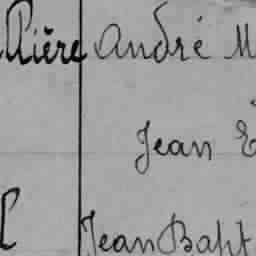 André M
Jean
Jean Bapt